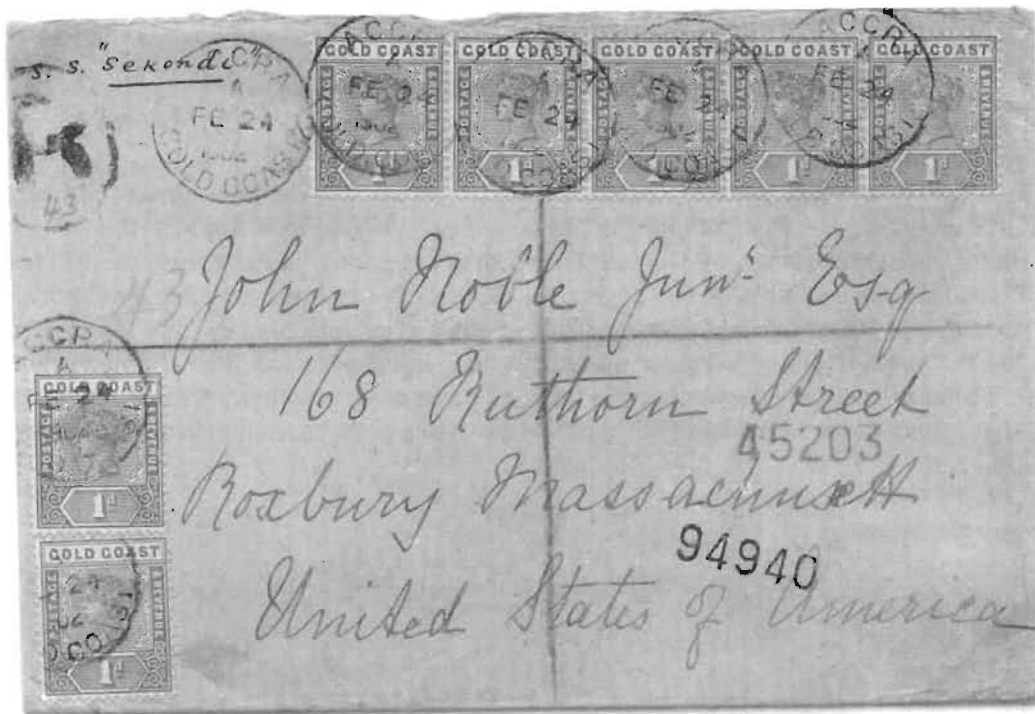 s. s. "Sekondi"
ACCRA
A
FE 24
1902
GOLD COAST
GOLD COAST
POSTAGE
REVENUE
1d
GOLD COAST
POSTAGE
REVENUE
1d
GOLD COAST
POSTAGE
REVENUE
1d
GOLD COAST
POSTAGE
REVENUE
1d
GOLD COAST
POSTAGE
REVENUE
1d
ACCRA
FE 24
FE 24
FE 24
ACCRA
FE 24
43
43 John Noble Junr Esq
168 Ruthorn Street
45203
Roxbury Massachusett
94940
United States of America
ACCRA
A
24
GOLD COAST
POSTAGE
REVENUE
1d
GOLD COAST
POSTAGE
REVENUE
24
1d